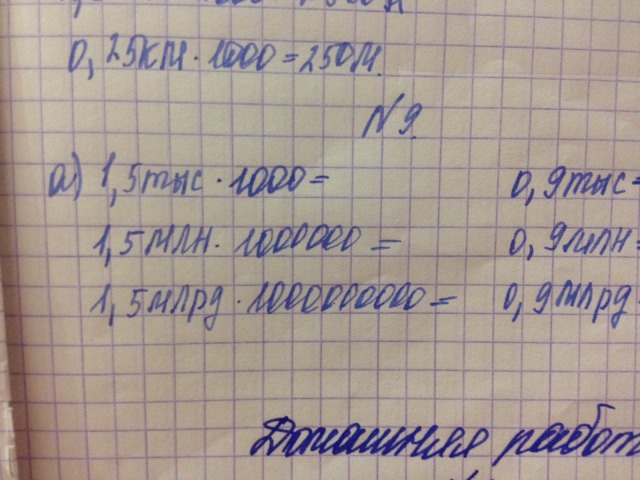 0,25км·1000=250м.
№9.
а) 1,5тыс·1000= 0,9тыс=
1,5млн·1000000= 0,9млн=
1,5млрд·1000000000= 0,9млрд
Домашняя работ